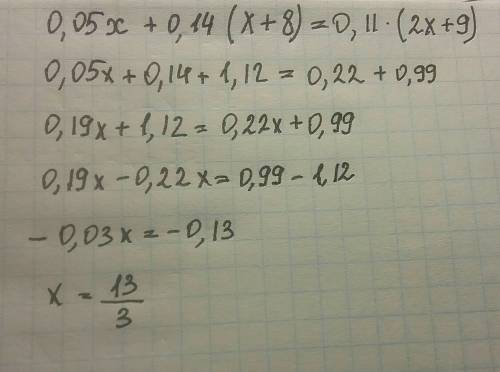 0,05x + 0,14 (x+8) = 0,11 · (2x+9)
0,05x + 0,14 + 1,12 = 0,22 + 0,99
0,19x + 1,12 = 0,22x + 0,99
0,19x - 0,22x = 0,99 - 1,12
- 0,03x = - 0,13
x = 13/3